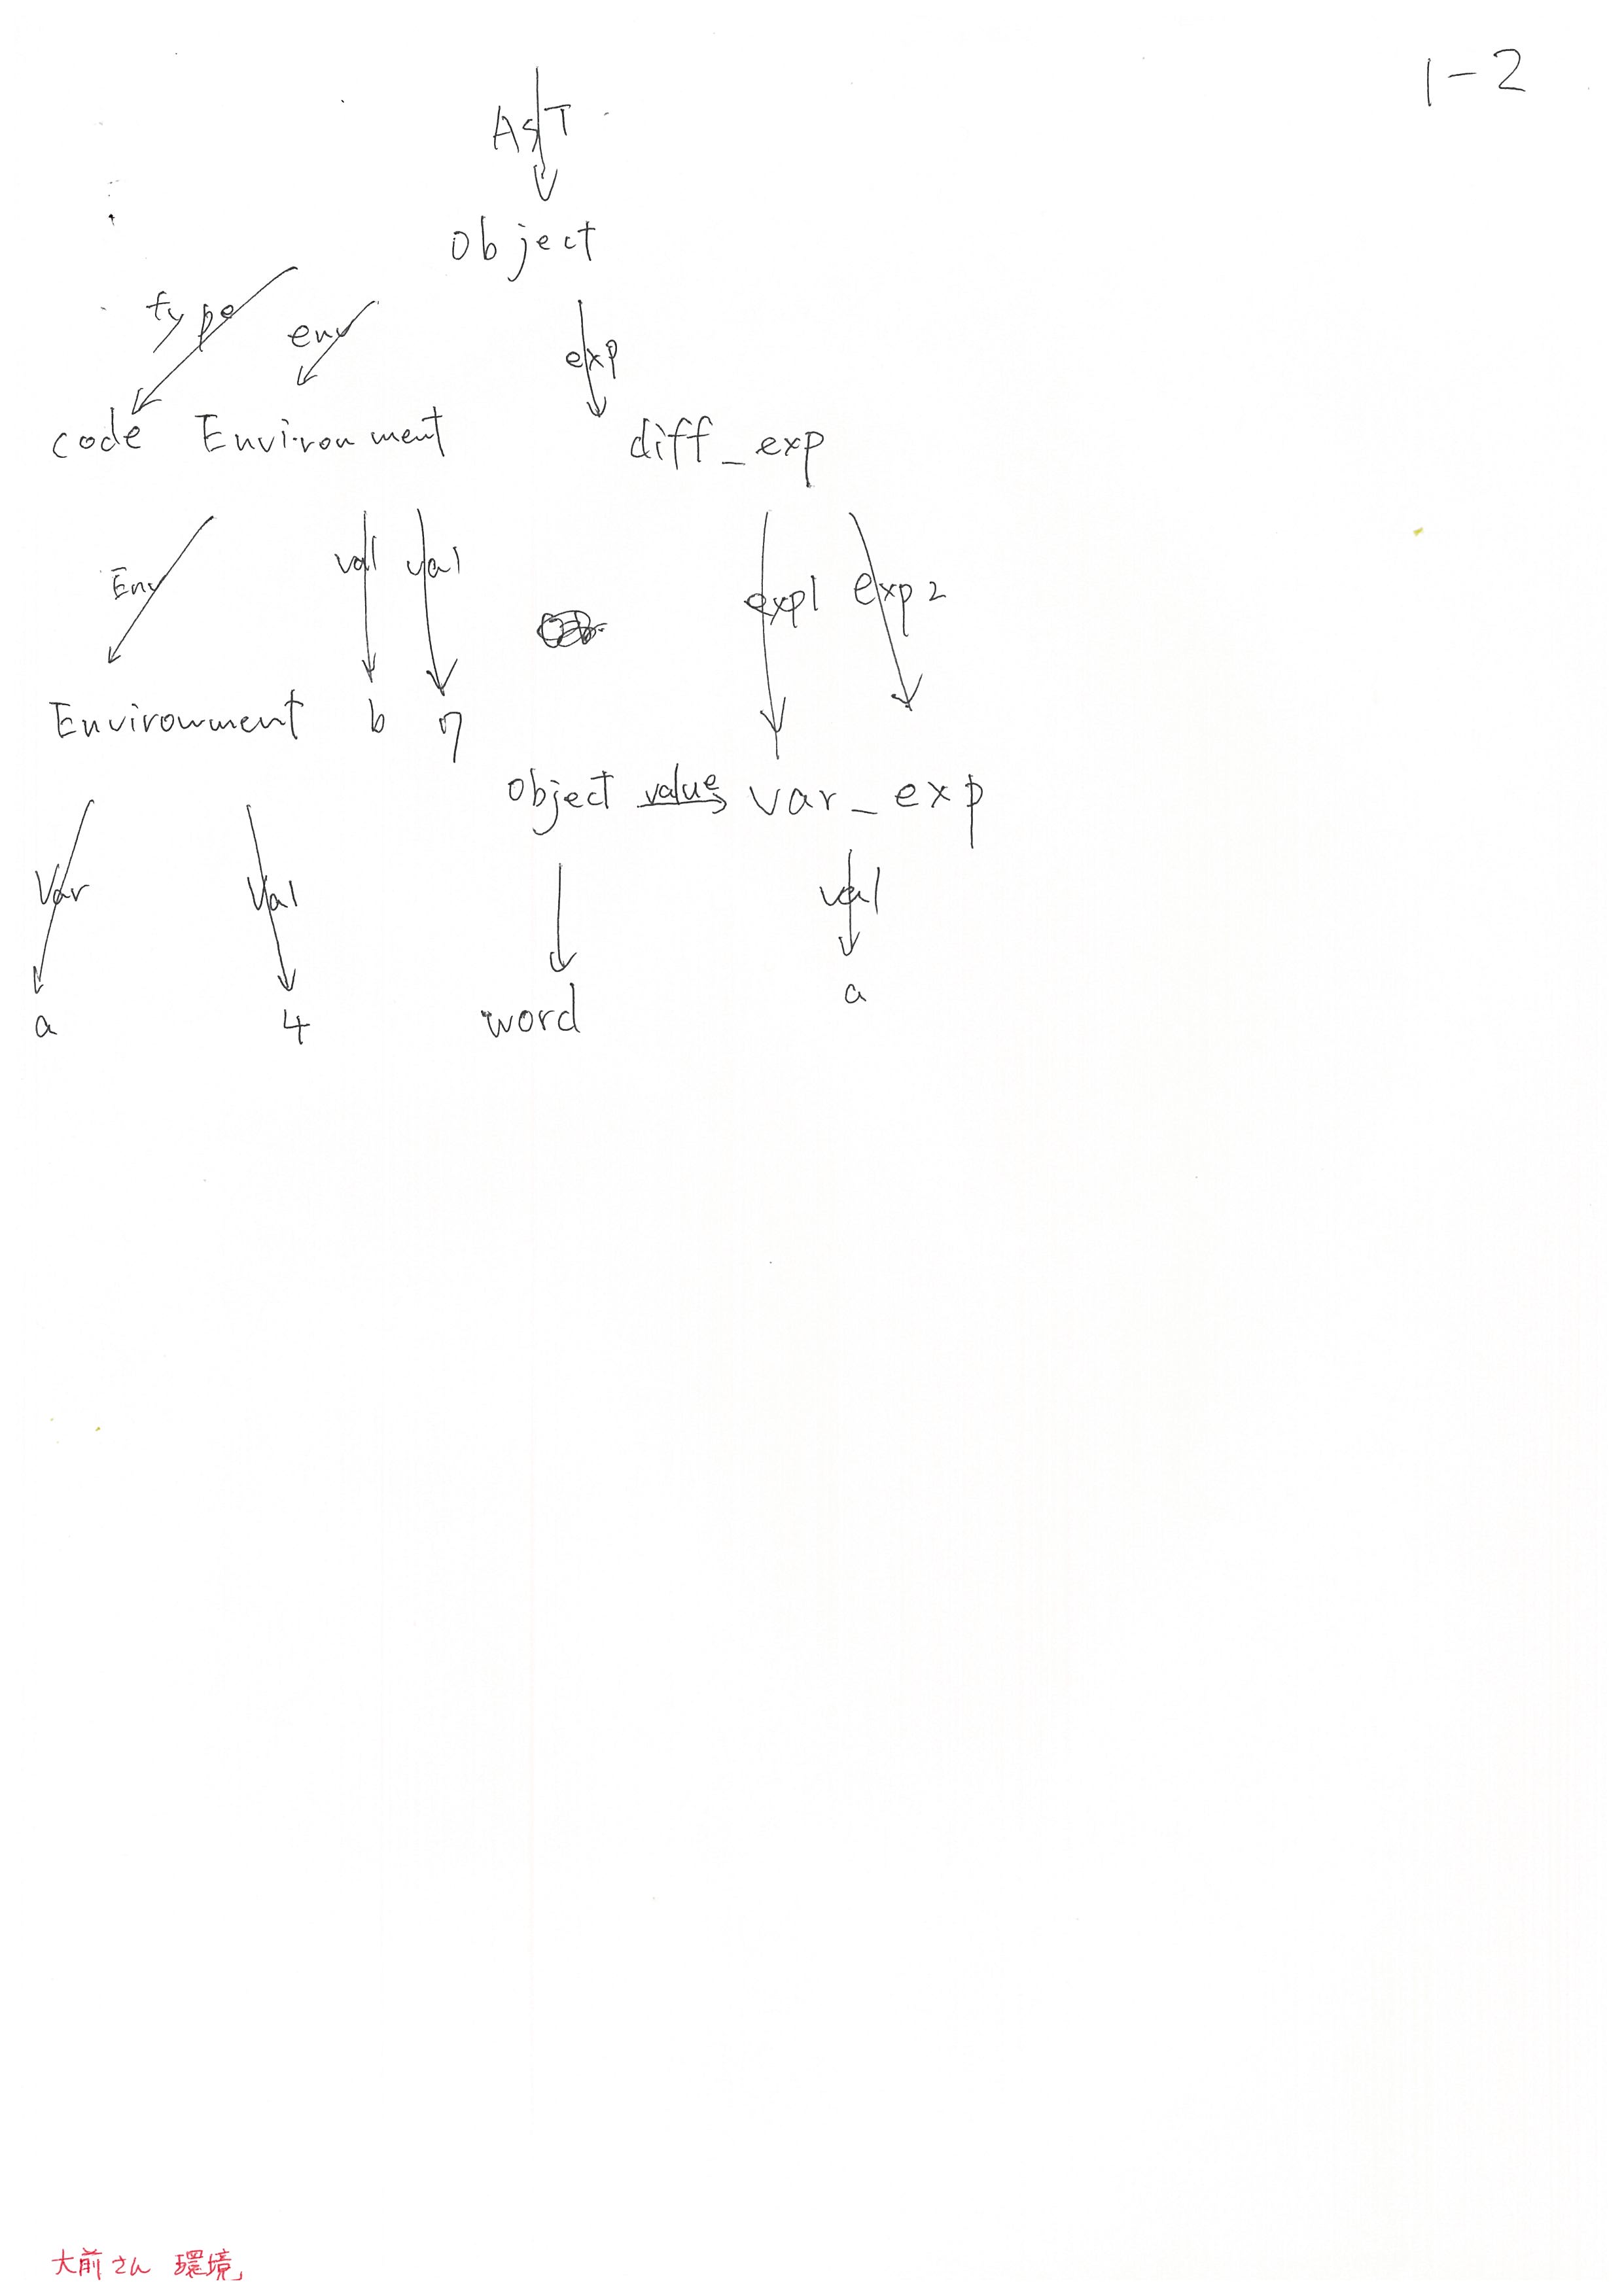 1-2
AST
object
type env exp
code Environment diff_exp
Env val val exp1 exp2
Environment b 7
object value var_exp
Var Val val
a 4 word a
大前さん 環境」